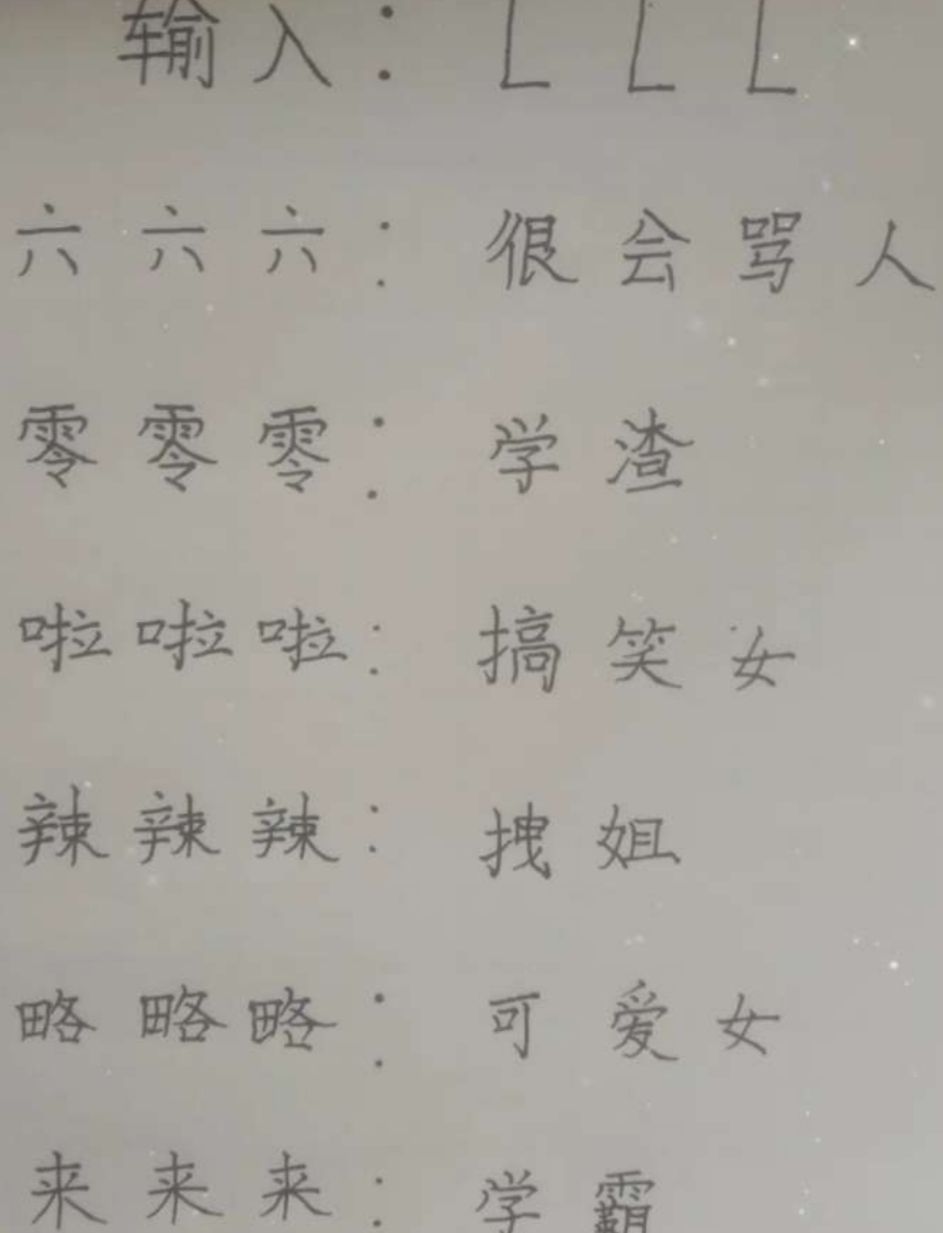 输入: L L L
六六六: 很会骂人
零零零: 学渣
啦啦啦: 搞笑女
辣辣辣: 拽姐
略略略: 可爱女
来来来: 学霸